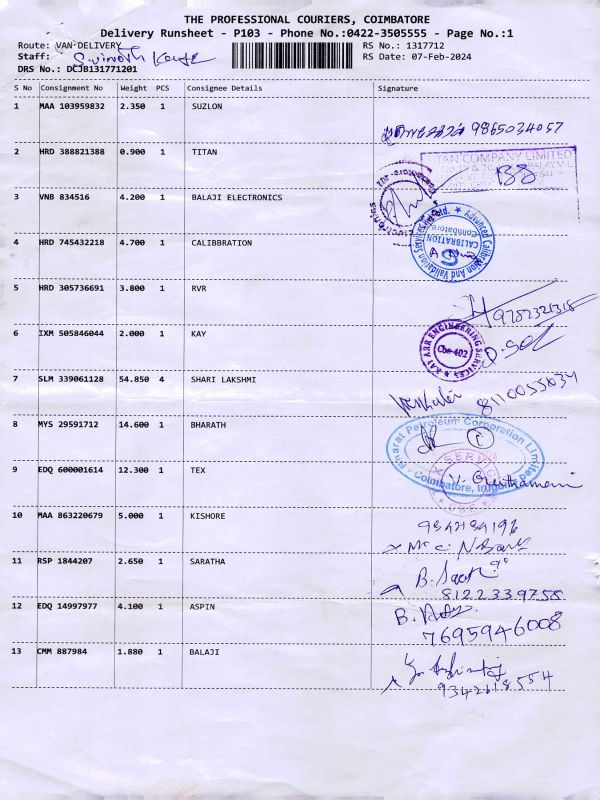 THE PROFESSIONAL COURIERS, COIMBATORE
Delivery Runsheet - P103 - Phone No.:0422-3505555 - Page No.:1
Route: VAN DELIVERY RS No.: 1317712
Staff: RS Date: 07-Feb-2024
DRS No.: DCJB131771201
S No Consignment No Weight PCS Consignee Details Signature
1 MAA 103959832 2.350 1 SUZLON
9865034057
2 HRD 388821388 0.900 1 TITAN
TITAN COMPANY LIMITED
3 VNB 834516 4.200 1 BALAJI ELECTRONICS
4 HRD 745432218 4.700 1 CALIBBRATION
Advanced Calibration And Validation Services
CALIBRATION
Coimbatore
5 HRD 305736691 3.800 1 RVR
9782321318
6 IXM 505846044 2.000 1 KAY
KAY ARR ENGINEERING SERVICES
Cbe-402
7 SLM 339061128 54.850 4 SHARI LAKSHMI
8110055634
8 MYS 29591712 14.600 1 BHARATH
Bharat Petroleum Corporation Limited
Coimbatore, Irugur
9 EDQ 600001614 12.300 1 TEX
10 MAA 863220679 5.000 1 KISHORE
11 RSP 1844207 2.650 1 SARATHA
8122339758
12 EDQ 14997977 4.100 1 ASPIN
7695946008
13 CMM 887984 1.880 1 BALAJI
9342618554